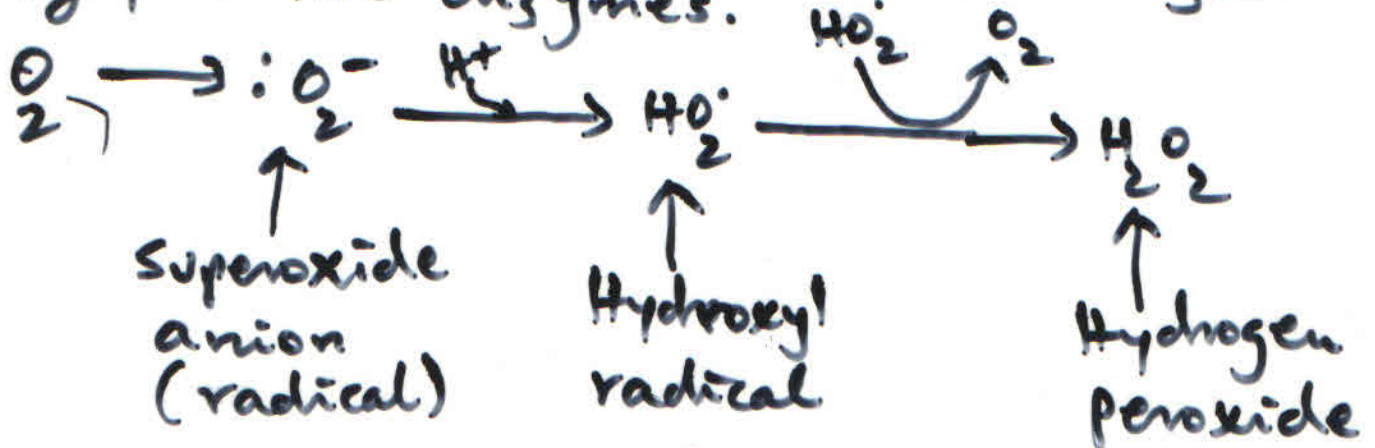 enzymes.
HO₂˙ O₂
O₂ → :O₂⁻ H⁺ → HO₂˙ → H₂O₂
Superoxide
anion
(radical)
Hydroxyl
radical
Hydrogen
peroxide